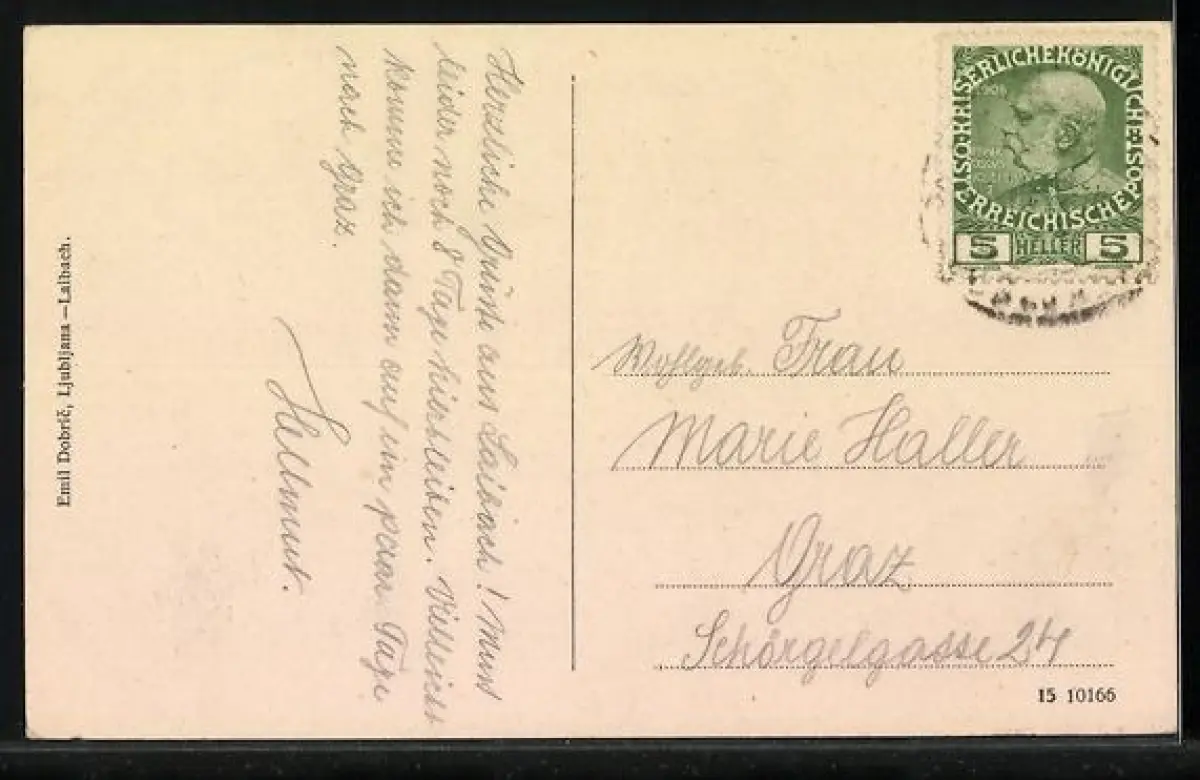 Herzliche Grüße aus Laibach! Muss
leider noch 8 Tage hierbleiben. Vielleicht
komme ich dann auf ein paar Tage
nach Graz.
Hellmut.
Emil Dobrič, Ljubljana—Laibach.
1908
KAISERLICHE KÖNIGLICHE
ÖSTERREICHISCHE POST
5 HELLER 5
Wohlgeb. Frau
Marie Haller
Graz
Schörgelgasse 24
15 10166